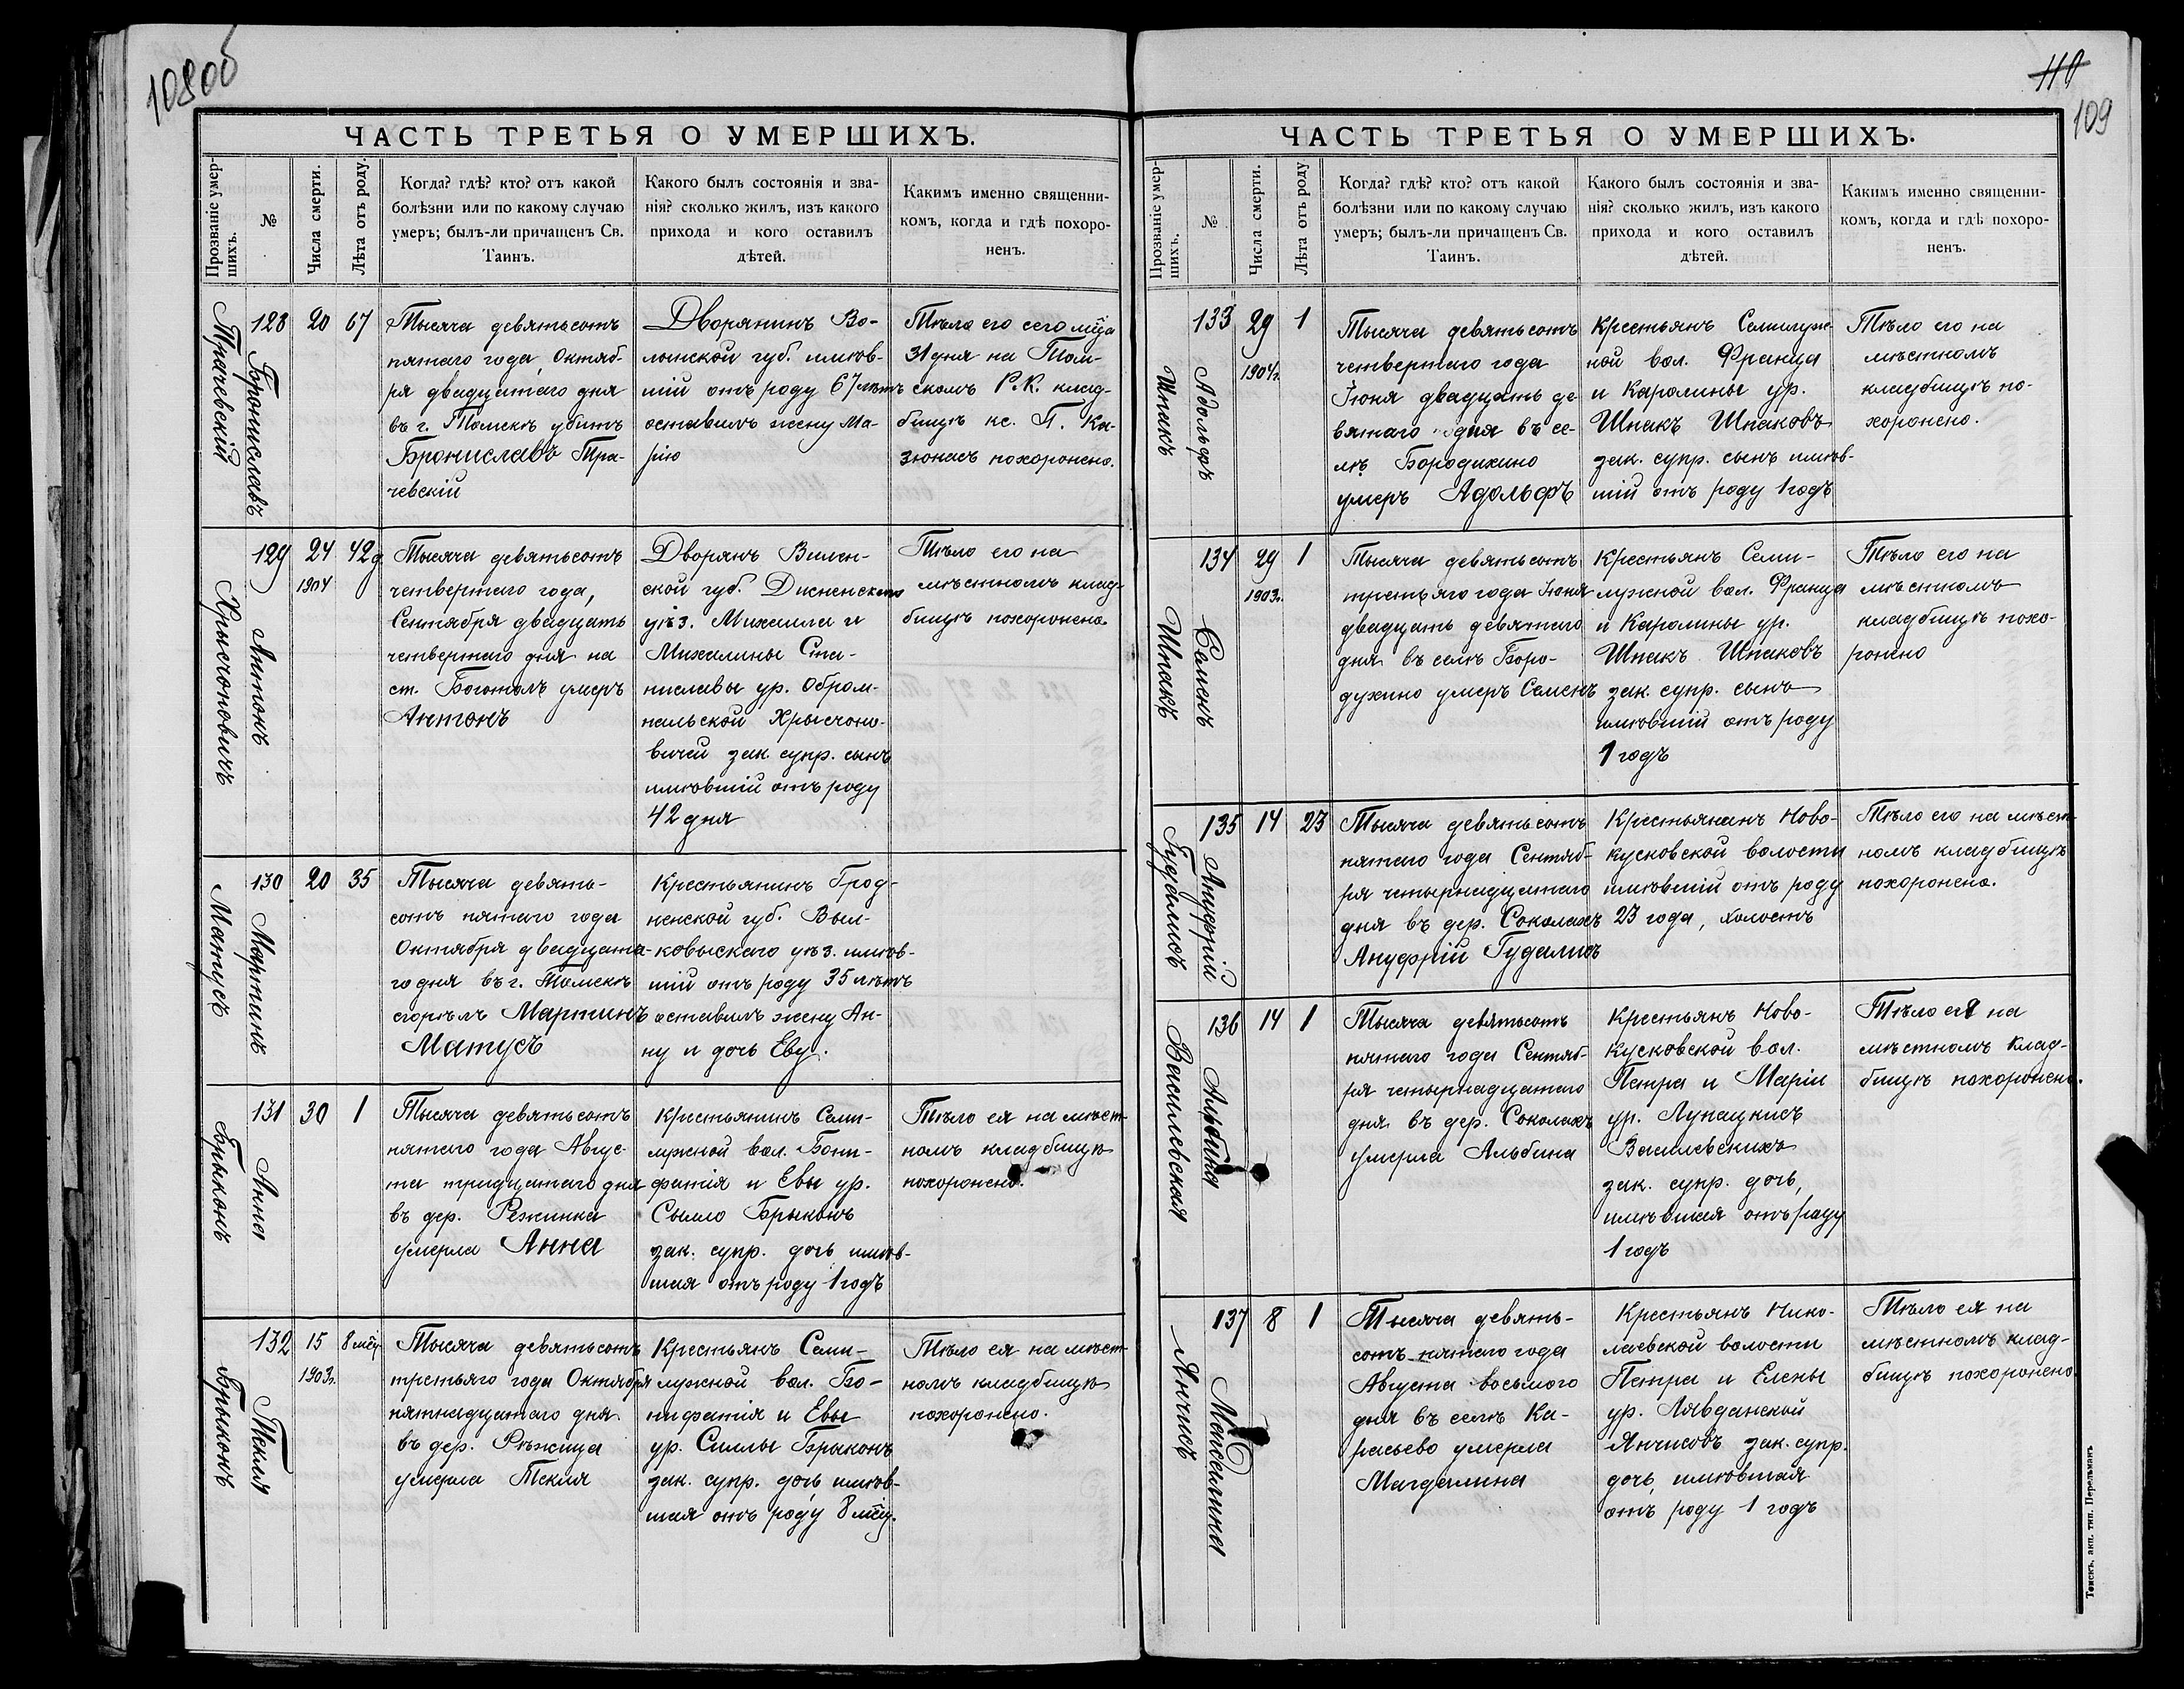 108об
ЧАСТЬ ТРЕТЬЯ О УМЕРШИХЪ.
Прозваніе умер-
шихъ.
№
Числа смерти.
Лѣта отъ роду.
Когда? гдѣ? кто? отъ какой
болѣзни или по какому случаю
умеръ; былъ-ли причащенъ Св.
Таинъ.
Какого былъ состоянія и зва-
нія? сколько жилъ, изъ какого
прихода и кого оставилъ
дѣтей.
Какимъ именно священни-
комъ, когда и гдѣ похоро-
ненъ.
Прачевскій
Брониславъ
128
20
67
Тысяча девятьсотъ
пятаго года, Октяб-
ря двадцатаго дня
въ г. Томскѣ убитъ
Брониславъ Пра-
чевскій
Дворянинъ Во-
лынской губ. имѣв-
шій отъ роду 67 лѣтъ
оставилъ жену Ма-
рію
Тѣло его сего м-ца
31 дня на Том-
скомъ Р.К. клад-
бищѣ кс. П. Ка-
зюнасъ похоронено.
Хрысчоновичъ
Антонъ
129
24
1904
42 д
Тысяча девятьсотъ
четвертаго года,
Сентября двадцать
четвертаго дня на
ст. Боготолъ умеръ
Антонъ
Дворянъ Вилен-
ской губ. Дисненскаго
уѣз. Михаила и
Михалины Ста-
ниславы ур. Обром-
пальской Хрысчоно-
вичей зак. супр. сынъ
имѣвшій отъ роду
42 дня
Тѣло его на
мѣстномъ клад-
бищѣ похоронено.
Матусъ
Мартинъ
130
20
35
Тысяча девять-
сотъ пятаго года
Октября двадцата-
го дня въ г. Томскѣ
сгорѣлъ Мартинъ
Матусъ
Крестьянинъ Грод-
ненской губ. Вол-
ковыскаго уѣз. имѣв-
шій отъ роду 35 лѣтъ
оставилъ жену Ан-
ну и дочь Еву.
Брыконъ
Анна
131
30
1
Тысяча девятьсотъ
пятаго года Авгус-
та тридцатаго дня
въ дер. Режинка
умерла Анна
Крестьянинъ Семи-
лужной вол. Бони-
фатія и Евы ур.
Сымло Брыконъ
зак. супр. дочь имѣв-
шая отъ роду 1 годъ
Тѣло ея на мѣст-
номъ кладбищѣ
похоронено.
Брыконъ
Текля
132
15
1903г.
8 м-цъ
Тысяча девятьсотъ
третьяго года Октября
пятнадцатаго дня
въ дер. Рѣжица
умерла Текля
Крестьянъ Семи-
лужной вол. Бо-
нифатія и Евы
ур. Симлы Брыконъ
зак. супр. дочь имѣв-
шая отъ роду 8 м-цъ.
Тѣло ея на мѣст-
номъ кладбищѣ
похоронено.
110
109
ЧАСТЬ ТРЕТЬЯ О УМЕРШИХЪ.
Прозваніе умер-
шихъ.
№
Числа смерти.
Лѣта отъ роду
Когда? гдѣ? кто? отъ какой
болѣзни или по какому случаю
умеръ; былъ-ли причащенъ Св.
Таинъ.
Какого былъ состоянія и зва-
нія? сколько жилъ, изъ какого
прихода и кого оставилъ
дѣтей.
Какимъ именно священни-
комъ, когда и гдѣ похоро-
ненъ.
Шпакъ
Адольфъ
133
29
1904г.
1
Тысяча девятьсотъ
четвертаго года
Іюня двадцать де-
вятаго дня въ се-
лѣ Бородихино
умеръ Адольфъ
Крестьянъ Семилуж-
ной вол. Франца
и Каролины ур.
Шпакъ Шпаковъ
зак. супр. сынъ имѣв-
шій отъ роду 1 годъ
Тѣло его на
мѣстномъ
кладбищѣ по-
хоронено.
Шпакъ
Семенъ
134
29
1903г.
1
Тысяча девятьсотъ
третьяго года Іюня
двадцать девятаго
дня въ селѣ Боро-
духино умеръ Семенъ
Крестьянъ Семи-
лужной вол. Франца
и Каролины ур.
Шпакъ Шпаковъ
зак. супр. сынъ
имѣвшій отъ роду
1 годъ
Тѣло его на
мѣстномъ
кладбищѣ похо-
ронено
Гудалисъ
Ануфрій
135
14
23
Тысяча девятьсотъ
пятаго года Сентяб-
ря четырнадцатаго
дня въ дер. Соколахъ
Ануфрій Гудалисъ
Крестьянинъ Ново-
кусковской волости
имѣвшій отъ роду
23 года, холостъ
Тѣло его на мѣст-
номъ кладбищѣ
похоронено.
Василевская
Альбина
136
14
1
Тысяча девятьсотъ
пятаго года Сентяб-
ря четырнадцатаго
дня въ дер. Соколахъ
умерла Альбина
Крестьянъ Ново-
Кусковской вол.
Петра и Маріи
ур. Лупацкисъ
Василевскихъ
зак. супр. дочь,
имѣвшая отъ роду
1 годъ
Тѣло ея на
мѣстномъ клад-
бищѣ похоронено.
Янчисъ
Магдалина
137
8
1
Тысяча девять-
сотъ пятаго года
Августа восьмого
дня въ селѣ Ка-
расьево умерла
Магдалина
Крестьянъ Нико-
лаевской волости
Петра и Елены
ур. Лявданской
Янчисовъ зак. супр.
дочь, имѣвшая
отъ роду 1 годъ
Тѣло ея на
мѣстномъ клад-
бищѣ похоронено.
Томскъ, акц. тип. Перельманъ